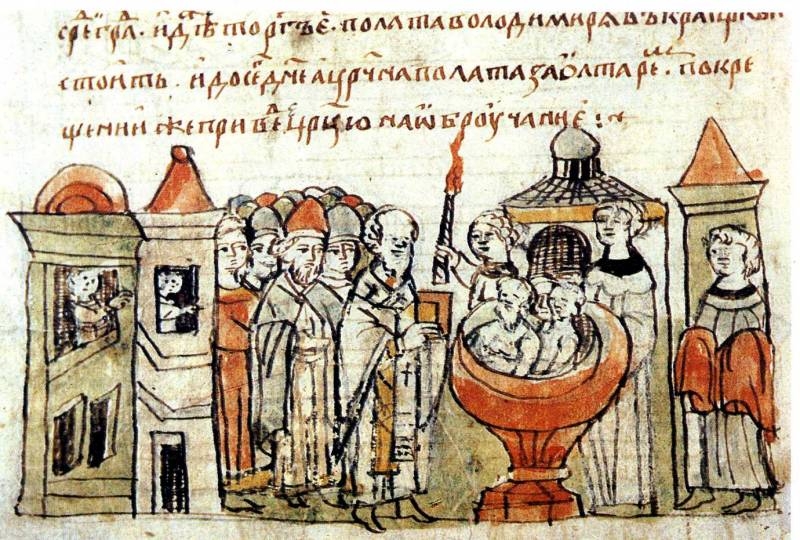 среграⷣ. идѣ торгъ е. полата володимиря въ краи цркви
стоить. и досеⷣне а црчна полата за олтареⷨ. покре
щении же привеⷣ црцю на ѡброучание :~